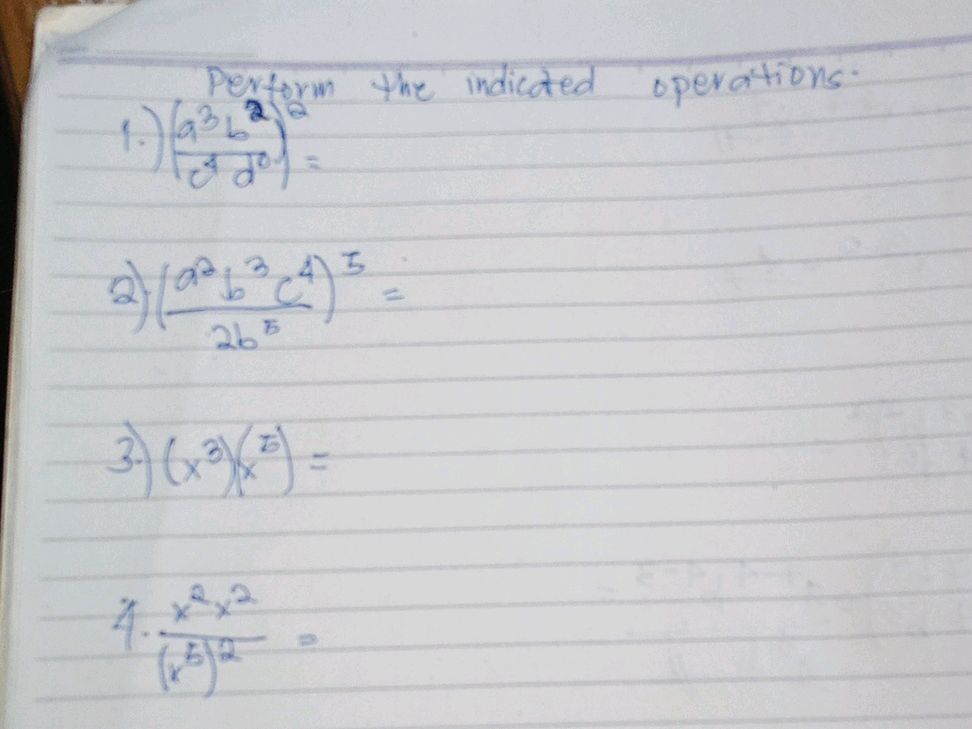 Perform the indicated operations.
1.) (a³b²/c⁴d⁰)² =
2.) (a²b³c⁴/2b⁵)⁵ =
3.) (x³)(x⁵) =
4. x²x²/(x⁵)² =